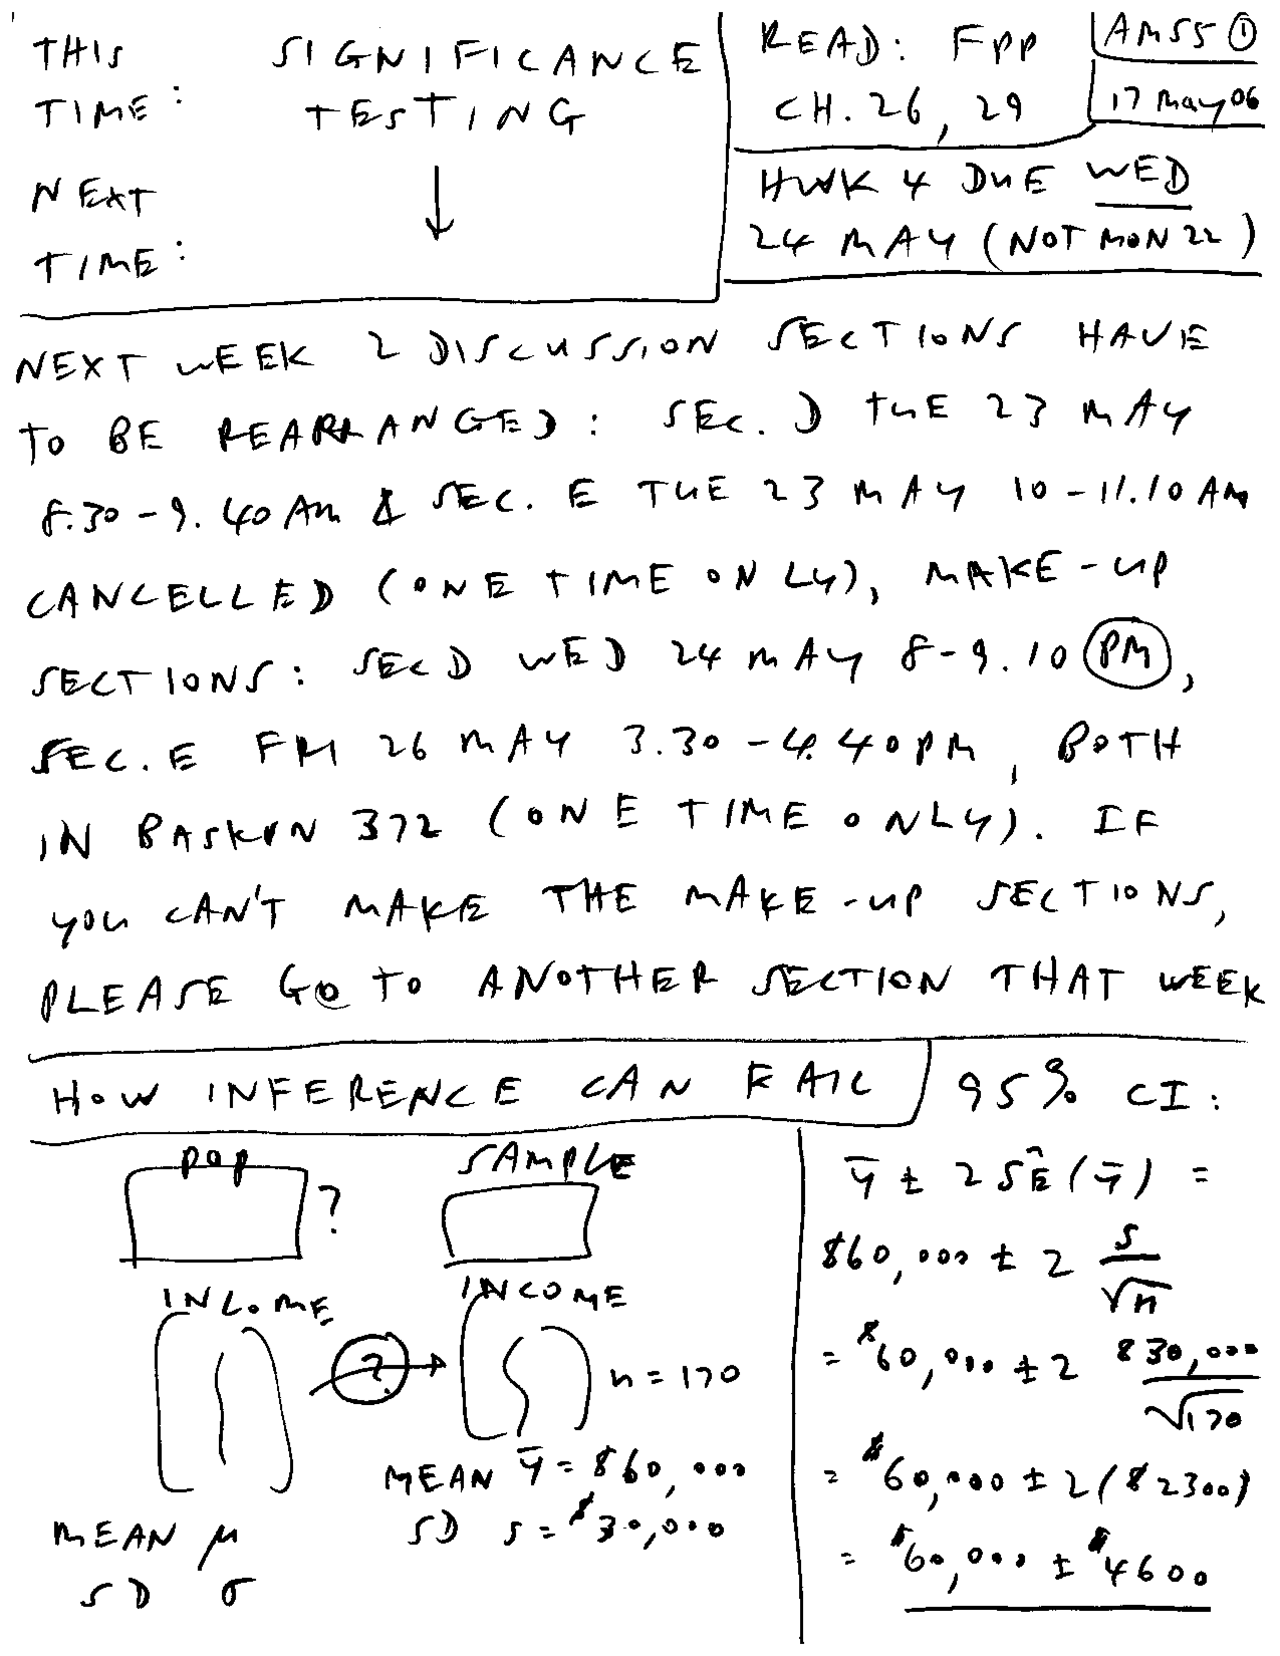 THIS TIME: SIGNIFICANCE TESTING
NEXT TIME: ↓
READ: FPP CH. 26, 29
AMS5 ①
17 May 06
HWK 4 DUE WED
24 MAY (NOT MON 22)
NEXT WEEK 2 DISCUSSION SECTIONS HAVE
TO BE REARRANGED: SEC. D TUE 23 MAY
8.30-9.40 AM & SEC. E TUE 23 MAY 10-11.10 AM
CANCELLED (ONE TIME ONLY), MAKE-UP
SECTIONS: SEC D WED 24 MAY 8-9.10 PM,
SEC. E FRI 26 MAY 3.30-4.40 PM, BOTH
IN BASKIN 372 (ONE TIME ONLY). IF
YOU CAN'T MAKE THE MAKE-UP SECTIONS,
PLEASE GO TO ANOTHER SECTION THAT WEEK
HOW INFERENCE CAN FAIL
POP ?
SAMPLE
INCOME
INCOME
?
n = 170
MEAN ȳ = $60,000
SD s = $30,000
MEAN μ
SD σ
95% CI:
ȳ ± 2 SÊ(ȳ) =
$60,000 ± 2 s/√n
= $60,000 ± 2 $30,000/√170
= $60,000 ± 2($2300)
= $60,000 ± $4600